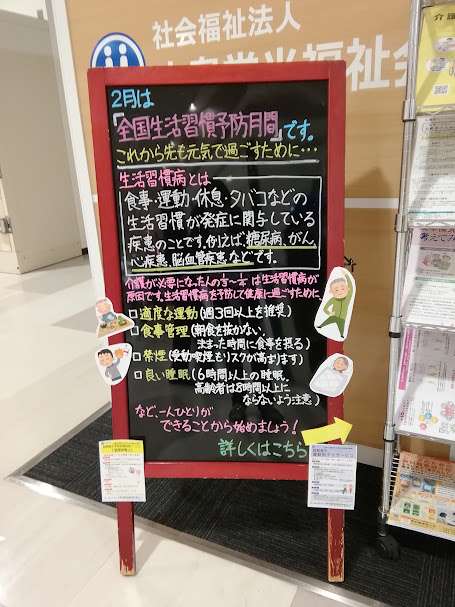 社会福祉法人
福祉会
2月は
「全国生活習慣予防月間」です。
これから先も元気で過ごすために…
生活習慣病とは
食事・運動・休息・タバコなどの
生活習慣が発症に関与している
疾患のことです。例えば、糖尿病、がん
心疾患、脳血管疾患などです。
介護が必要になった人の は生活習慣病が
原因です。生活習慣病を予防して健康に過ごすために、
□適度な運動(週3回以上を推奨)
□食事管理(朝食を抜かない、
決まった時間に食事を摂る)
□禁煙(受動喫煙もリスクが高まります)
□良い睡眠(6時間以上の睡眠、
高齢者は8時間以上に
ならないよう注意)
など、一人ひとりが
できることから始めましょう!
詳しくはこちら